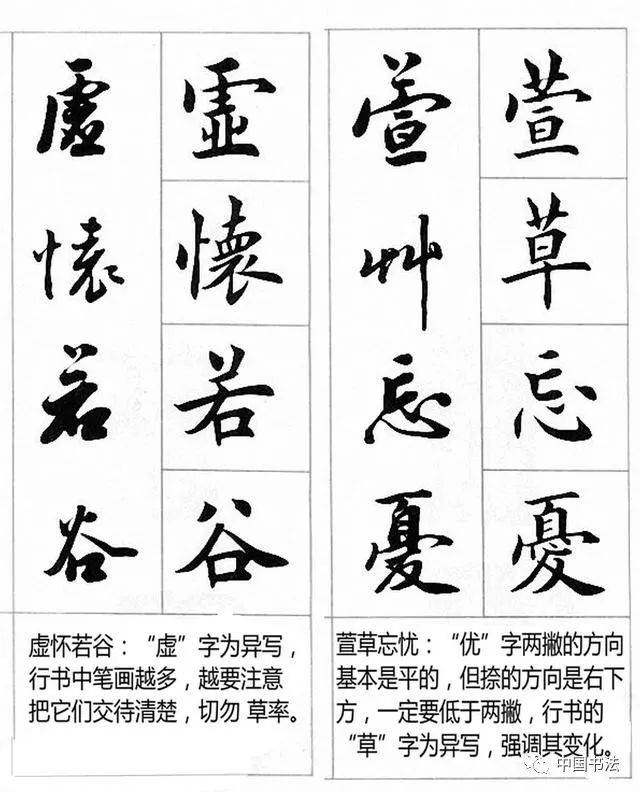 虛懷若谷
虛懷若谷
虚怀若谷：“虚”字为异写，
行书中笔画越多，越要注意
把它们交待清楚，切勿 草率。
萱艸忘憂
萱草忘憂
萱草忘忧：“优”字两撇的方向
基本是平的，但捺的方向是右下
方，一定要低于两撇，行书的
“草”字为异写，强调其变化。
中国书法